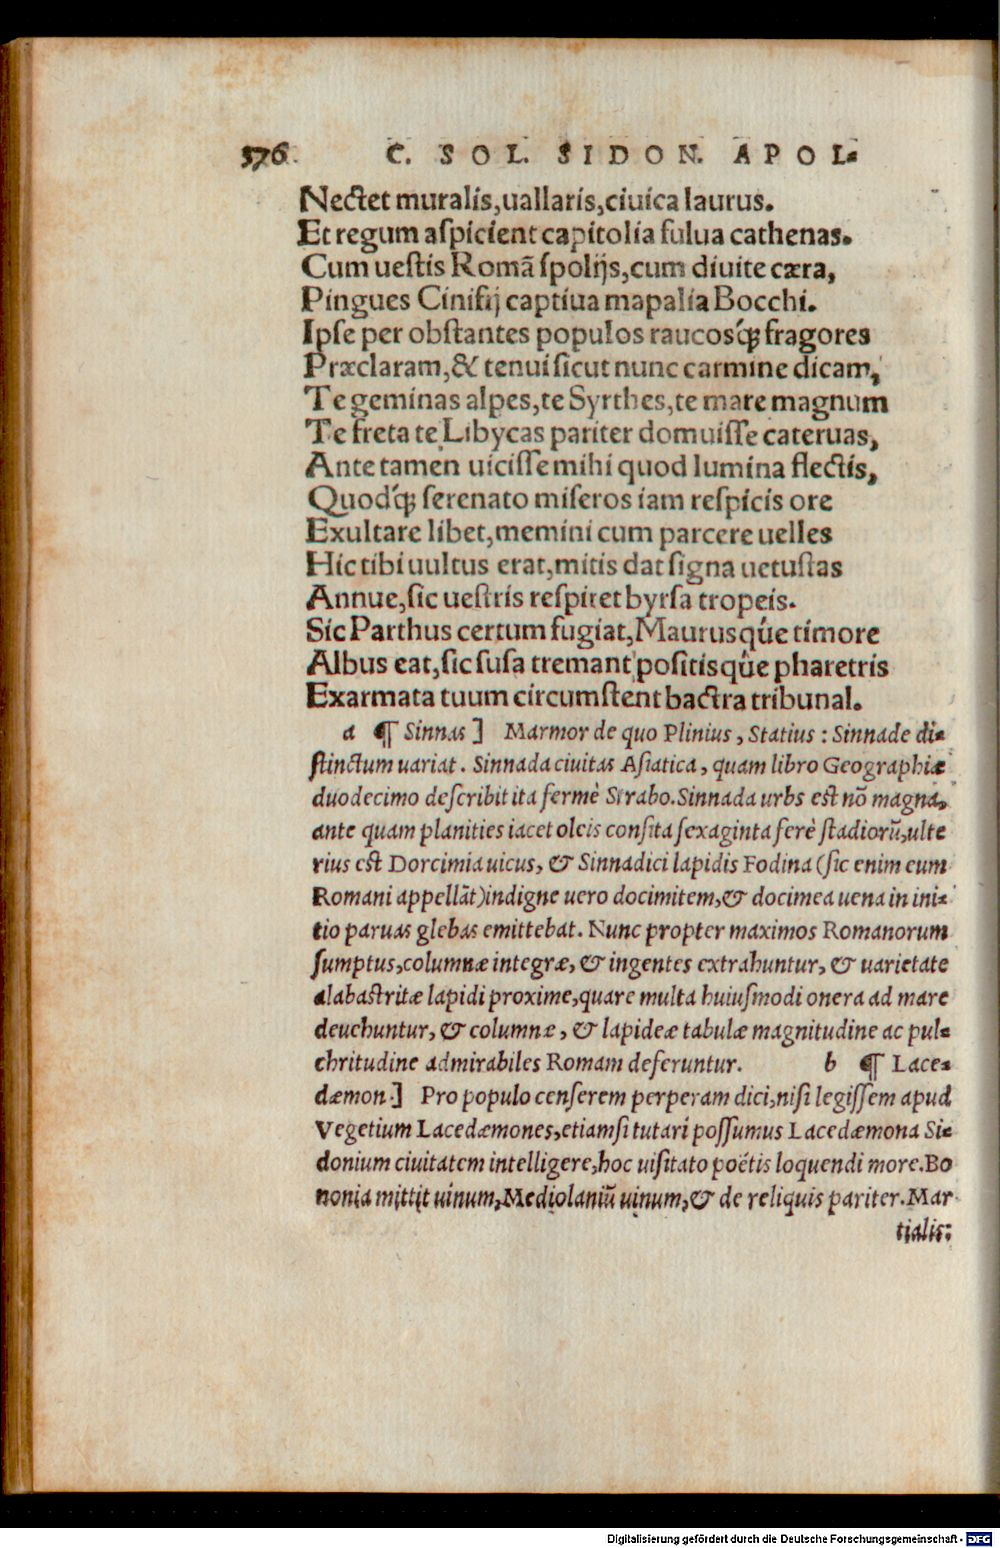 376. C. SOL. SIDON. APOL⸗
Nectet muralis,uallaris,ciuica laurus.
Et regum aſpicient capitolia fulua cathenas.
Cum ueſtis Romā ſpolijs,cum diuite cæra,
Pingues Cinifij captiua mapalia Bocchi.
Ipſe per obſtantes populos raucosq́ꝫ fragores
Præclaram,& tenui ſicut nunc carmine dicam,
Te geminas alpes,te Syrthes,te mare magnum
Te freta te Libycas pariter domuiſſe cateruas,
Ante tamen uiciſſe mihi quod lumina flectis,
Quodq́ꝫ ſerenato miſeros iam reſpicis ore
Exultare libet,memini cum parcere uelles
Hic tibi uultus erat,mitis dat ſigna uetuſtas
Annue,ſic ueſtris reſpiret byrſa tropeis.
Sic Parthus certum fugiat,Maurusq̃ue timore
Albus eat,ſic ſuſa tremant poſitisq̃ue pharetris
Exarmata tuum circumſtent bactra tribunal.
a ¶ Sinnas] Marmor de quo Plinius, Statius: Sinnade di⸗
ſtinctum uariat. Sinnada ciuitas Aſiatica, quam libro Geographiæ
duodecimo deſcribit ita fermè Strabo.Sinnada urbs eſt nō magna,
ante quam planities iacet oleis conſita ſexaginta ferè ſtadiorū,ulte
rius eſt Dorcimia uicus, & Sinnadici lapidis Fodina (ſic enim eum
Romani appellāt)indigne uero docimitem,& docimea uena in ini⸗
tio paruas glebas emittebat. Nunc propter maximos Romanorum
ſumptus,columnæ integræ, & ingentes extrahuntur, & uarietate
alabaſtritæ lapidi proxime,quare multa huiuſmodi onera ad mare
deuehuntur, & columnæ, & lapideæ tabulæ magnitudine ac pul⸗
chritudine admirabiles Romam deferuntur. b ¶ Lace⸗
dæmon.] Pro populo cenſerem perperam dici,niſi legiſſem apud
Vegetium Lacedæmones,etiamſi tutari poſſumus Lacedæmona Si⸗
donium ciuitatem intelligere,hoc uiſitato poëtis loquendi more.Bo
nonia mittit uinum,Mediolaniū uinum,& de reliquis pariter.Mar
tialis:
Digitalisierung gefördert durch die Deutsche Forschungsgemeinschaft - DFG